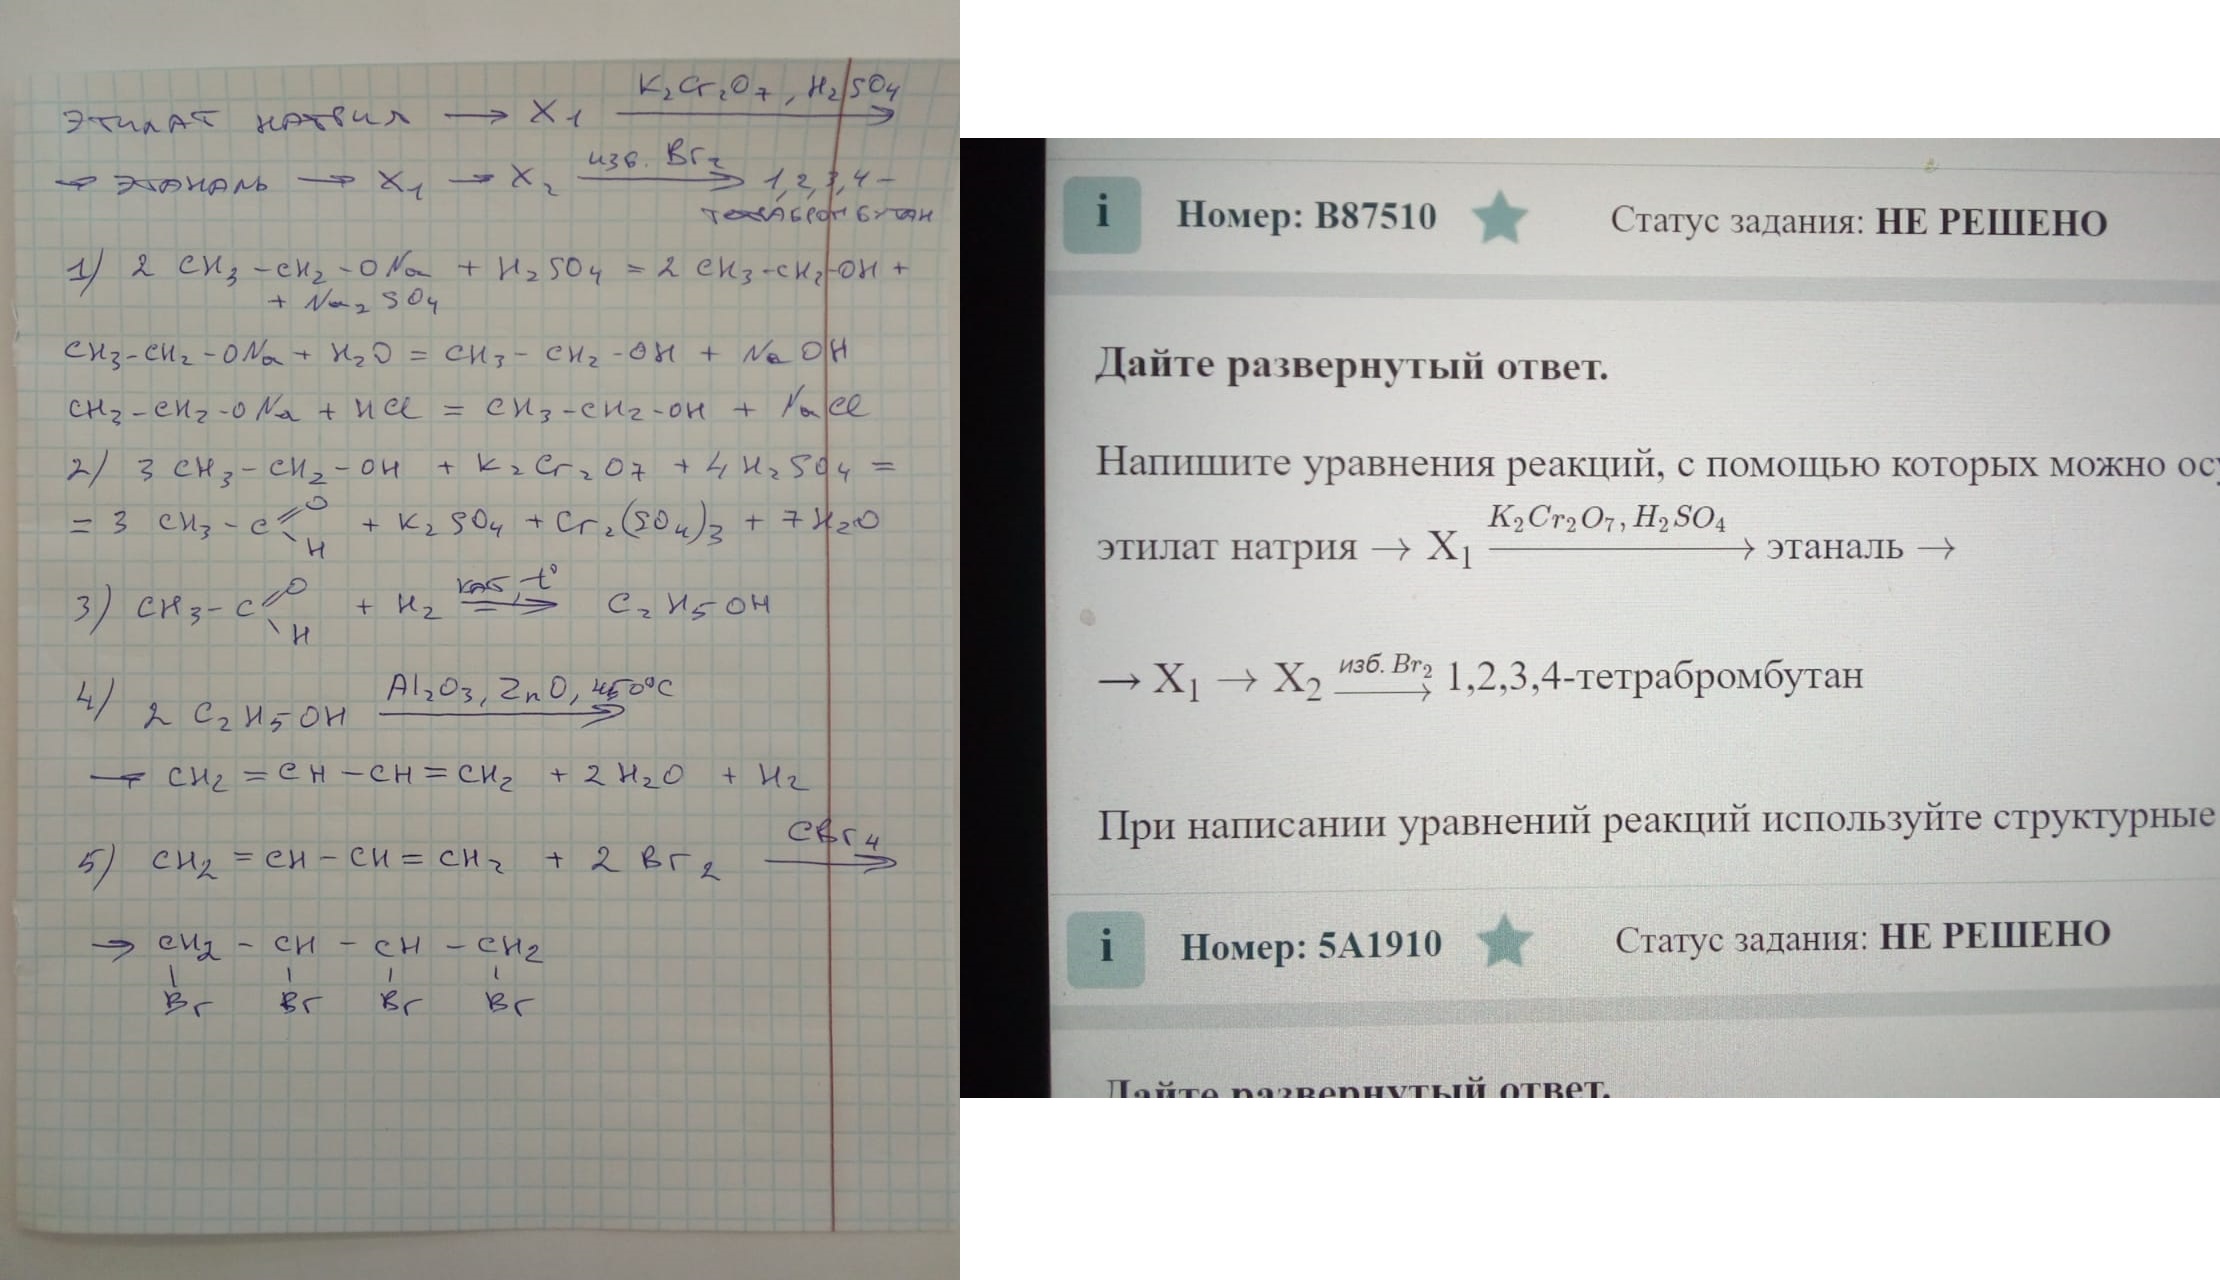 этилат натрия → X₁ K₂Cr₂O₇, H₂SO₄ →
→ этаналь → X₁ → X₂ изб. Br₂ → 1,2,3,4-
тетрабромбутан
1) 2 CH₃-CH₂-ONa + H₂SO₄ = 2 CH₃-CH₂-OH +
+ Na₂SO₄
CH₃-CH₂-ONa + H₂O = CH₃-CH₂-OH + NaOH
CH₃-CH₂-ONa + HCl = CH₃-CH₂-OH + NaCl
2) 3 CH₃-CH₂-OH + K₂Cr₂O₇ + 4 H₂SO₄ =
= 3 CH₃-C=O H + K₂SO₄ + Cr₂(SO₄)₃ + 7 H₂O
3) CH₃-C=O H + H₂ кат, t° → C₂H₅OH
4) 2 C₂H₅OH Al₂O₃, ZnO, 450°C →
→ CH₂=CH-CH=CH₂ + 2 H₂O + H₂
5) CH₂=CH-CH=CH₂ + 2 Br₂ CBr₄ →
→ CH₂-CH-CH-CH₂
Br Br Br Br
i Номер: B87510 Статус задания: НЕ РЕШЕНО
Дайте развернутый ответ.
Напишите уравнения реакций, с помощью которых можно ос
этилат натрия → X₁ K₂Cr₂O₇, H₂SO₄ → этаналь →
→ X₁ → X₂ изб. Br₂ → 1,2,3,4-тетрабромбутан
При написании уравнений реакций используйте структурные
i Номер: 5A1910 Статус задания: НЕ РЕШЕНО
Дайте развернутый ответ.